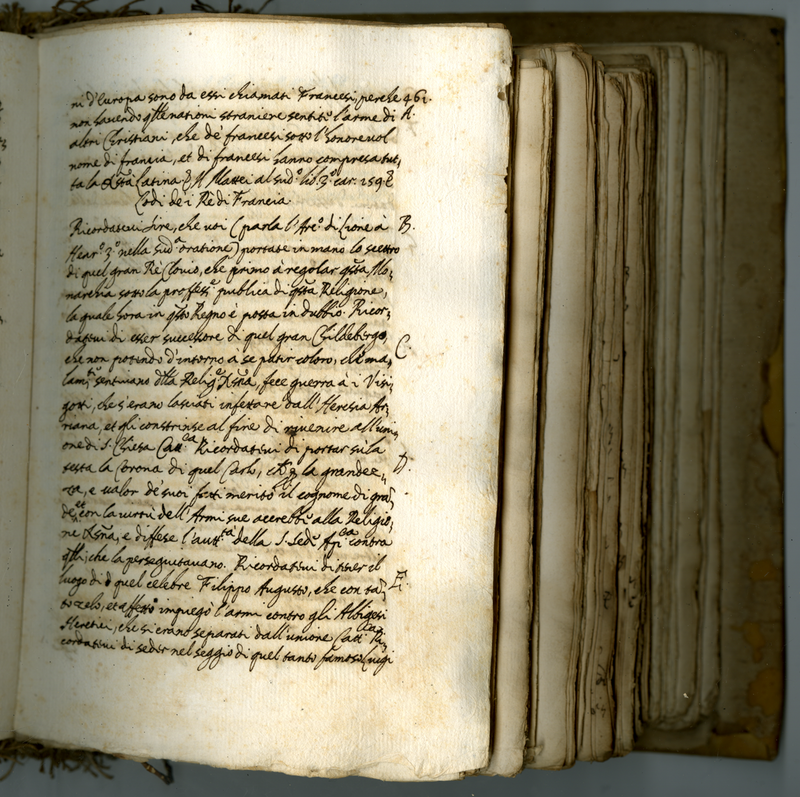 ni d'Europa sono da essi chiamati Francesi, perche 461.
non havendo q̃lle nationi straniere sentito l'arme di A.
altri Christiani, che de' francesi sotto l'honorevol
nome di francia, et di francesi hanno compresa tut,
ta la Xp̃tà latina P. Mattei al sud.º lib. 3.º car. 159.
Lodi de i Rè di Francia.
Ricordatevi Sire, che voi (parla l'Arc.º di Lione à B.
Henr.º 3.º nella sud.ª oratione) portate in mano lo scettro
di quel gran Rè Clouio, che primo à regolar q̃sta Mo,
narchia sotto la profess.e publica di q̃sta Religione,
la quale hora in q̃sto Regno è posta in dubbio. Ricor,
datevi di esser successore di quel gran Childeberto, C.
che non potendo d'intorno a se patir coloro, che ma,
lam.te sentivano d̃lla Relig.e Xp̃na, fece guerra à i Visi,
gotti, che s'erano lasciati infettare dall'Heresia Ar,
riana, et gli constrinse al fine di rivenire all'uni,
one di S. Chiesa Catt.ca Ricordatevi di portar sula
testa la Corona di quel Carlo, che p̃ la grandez, D.
za, e valor de' suoi fatti meritò il cognome di gran
de, et con la virtù dell'Armi sue accrebbe alla Religio,
ne Xp̃na, e diffese l'autt.tà della S. Sede Ap.ca contra
q̃lli, che la perseguitavano. Ricordatevi di tener il
luogo di quel celebre Filippo Augusto, che con tan E.
to zelo, et affetto impiegò l'armi contro gli Albigesi
Heretici, che si erano separati dall'unione Catt.ca Ri,
cordatevi di seder nel seggio di quel tanto famoso Luigi